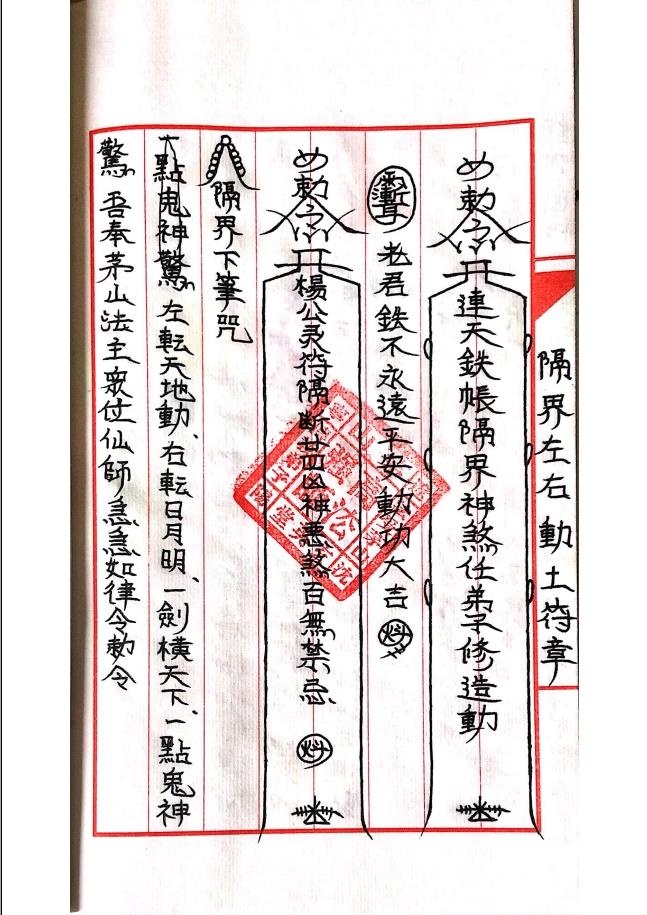 隔界左右 動土符章
敕令
連天鉄帳隔界神煞任弟子修造動
老君鉄不永遠平安動功大吉
敕令
楊公灵符隔断廿四凶神悪煞百無禁忌
隔界下筆咒
一點鬼神驚 左転天地動、右転日月明、一劍橫天下、一點鬼神
驚 吾奉茅山法主眾位仙師急急如律令敕令